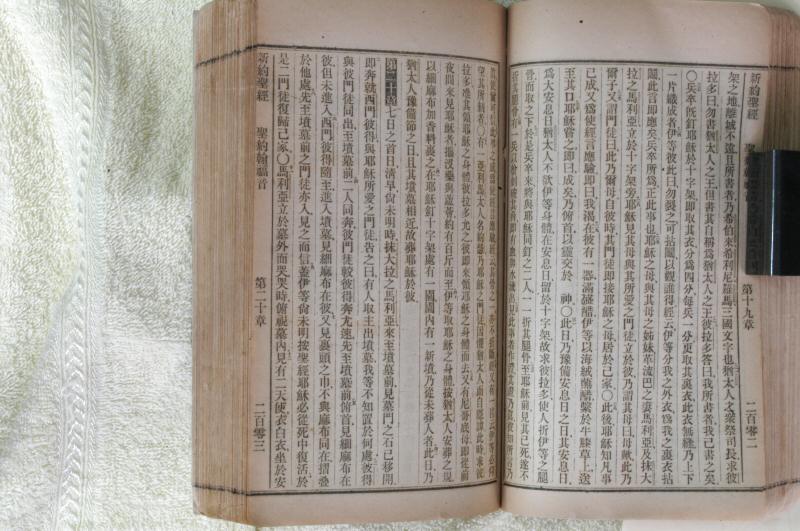 新約聖經 聖約翰福音 第十九章 二百零二
架之地離城不遠且所書者乃希伯來希利尼羅馬三國文字也猶太人之衆祭司長求彼
拉多曰勿書猶太人之王但書其自稱爲猶太人之王彼拉多答曰我所書者我已書之矣
〇兵卒旣釘耶穌於十字架卽取其衣分爲四分每兵一分更取其裏衣此衣無縫乃上下
一片織成者伊等彼此曰勿裂之可拈鬮以觀誰得經云伊等分我之外衣爲我之裏衣拈
鬮此言卽應矣兵卒所爲正此事也耶穌之母與其母之姊妹革流巴之妻馬利亞及抹大
拉之馬利亞立於十字架旁耶穌見其母與其所愛之門徒立於彼乃謂其母曰母歟此乃
爾子又謂門徒曰此乃爾母自彼時其門徒卽接耶穌之母居於己家〇此後耶穌知凡事
已成又爲使經言應驗卽曰我渴在彼有一器滿盛醋伊等以海絨蘸醋縶於牛膝草上送
至其口耶穌嘗之卽曰成矣乃俯首以靈交於 神〇此日乃豫備安息日之日其安息日
爲大安息日猶太人不欲伊等身體在安息日留於十字架故求彼拉多使人折伊等之腿
骨而取之下於是兵卒來將與耶穌同釘之二人一一折其腿骨至耶穌前見其已死遂不
望其所
拉多准其領耶穌之身體彼
夜間來見耶穌者攜沒藥與蘆薈約有百斤而至伊等取耶穌之身體按猶太人安葬之規
以細麻布加香料裹之在耶穌釘十字架處有一園園內有一新墳乃從未葬人者此日乃
猶太人豫備節之日且其墳墓相近故葬耶穌於彼
第二十章 七日之首日淸早尙未明時抹大拉之馬利亞來至墳墓前見墓門之石已移開
卽奔就西門彼得與耶穌所愛之門徒告之曰有人取主出墳墓我等不知置於何處彼得
與彼門徒同出至墳墓前二人同奔彼門徒較彼得奔尤速先至墳墓前俯首見細麻布在
彼但未進入西門彼得隨至進入墳墓見細麻布在彼又見裹頭之巾不與麻布同在摺疊
於他處先至墳墓前之門徒亦入見之而信蓋伊等尙未明按聖經耶穌必從死中復活於
是二門徒復歸己家〇馬利亞立於墓外而哭哭時俯視墓內見有二天使衣白衣坐於安
新約聖經 聖約翰福音 第二十章 二百零三